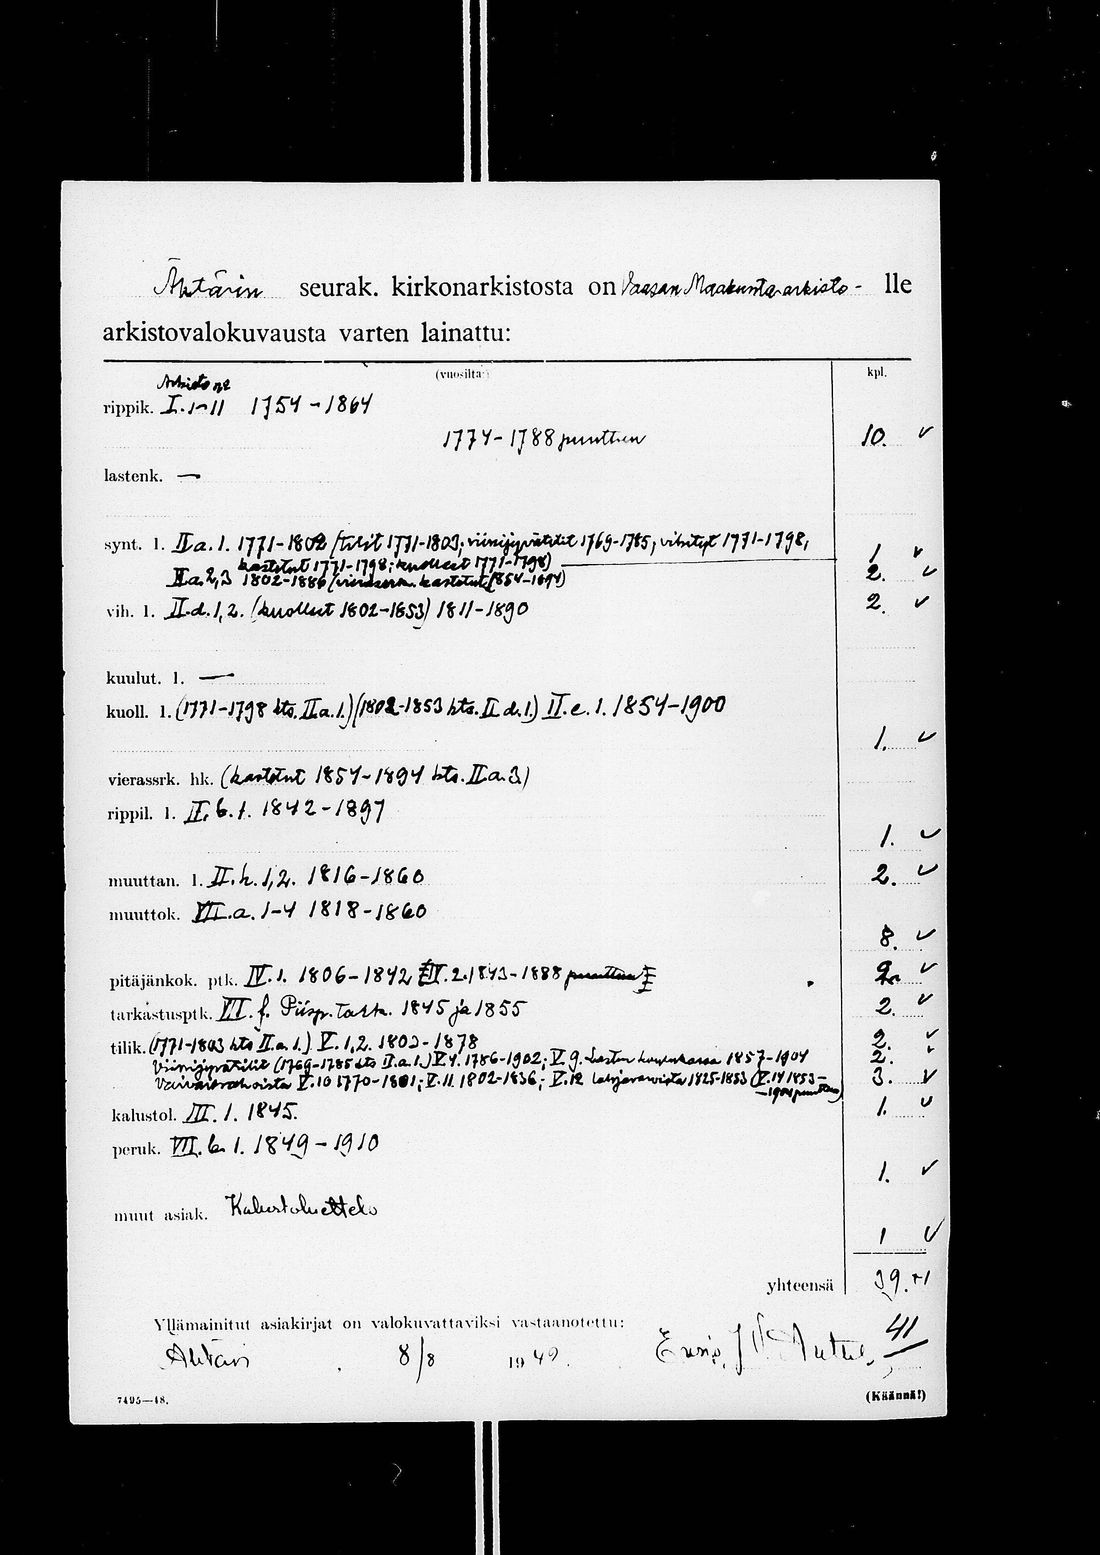 Ähtärin seurak. kirkonarkistosta on Vaasan Maakunta-arkisto- lle
arkistovalokuvausta varten lainattu:
(vuosilta) kpl.
Arkisto n:o
rippik. I. 1-11 1754-1864
1774-1788 puuttuu 10. ✓
lastenk. —
synt. l. II a. 1. 1771-1802 (tilit 1771-1803; viinijyvätilit 1769-1785; vihityt 1771-1798,
kastetut 1771-1798; kuolleet 1771-1798) 1. ✓
II a. 2,3 1802-1886 (vierassrk. kastetut 1854-1894) 2. ✓
vih. l. II.d. 1,2. (kuolleet 1802-1853) 1811-1890 2. ✓
kuulut. l. —
kuoll. l. (1771-1798 kts. II.a.1.) (1802-1853 kts. II.d.1.) II.e.1. 1854-1900
1. ✓
vierassrk. hk. (kastetut 1854-1894 kts. II a.3)
rippil. l. II.b.1. 1842-1897
1. ✓
muuttan. l. II.h. 1,2. 1816-1860 2. ✓
muuttok. VII.a. 1-4 1818-1860
8. ✓
pitäjänkok. ptk. IV.1. 1806-1842 IV.2. 1843-1888 puuttuu 2. ✓
tarkastusptk. VII. f. Piisp. tark. 1845 ja 1855 2. ✓
tilik. (1771-1803 kts II.a.1.) V.1,2. 1803-1878 2. ✓
Viinijyvätilit (1769-1785 kts II.a.1.) V.4. 1786-1902; V.9. Lasten kuvunkassa 1857-1904 2.
Vaivaisrahoista V.10 1770-1801; V.11. 1802-1836; V.12 lainjyvistä 1825-1853 (V.14 1853-
-1904 puuttuu) 3. ✓
kalustol. III. 1. 1845. 1. ✓
peruk. VII. b. 1. 1849-1910
1. ✓
muut asiak. Kalustoluettelo
1 ✓
yhteensä 39.+1
Yllämainitut asiakirjat on valokuvattaviksi vastaanotettu: 41
Ähtäri 8/8 1949.
7495—48. (Käännä!)